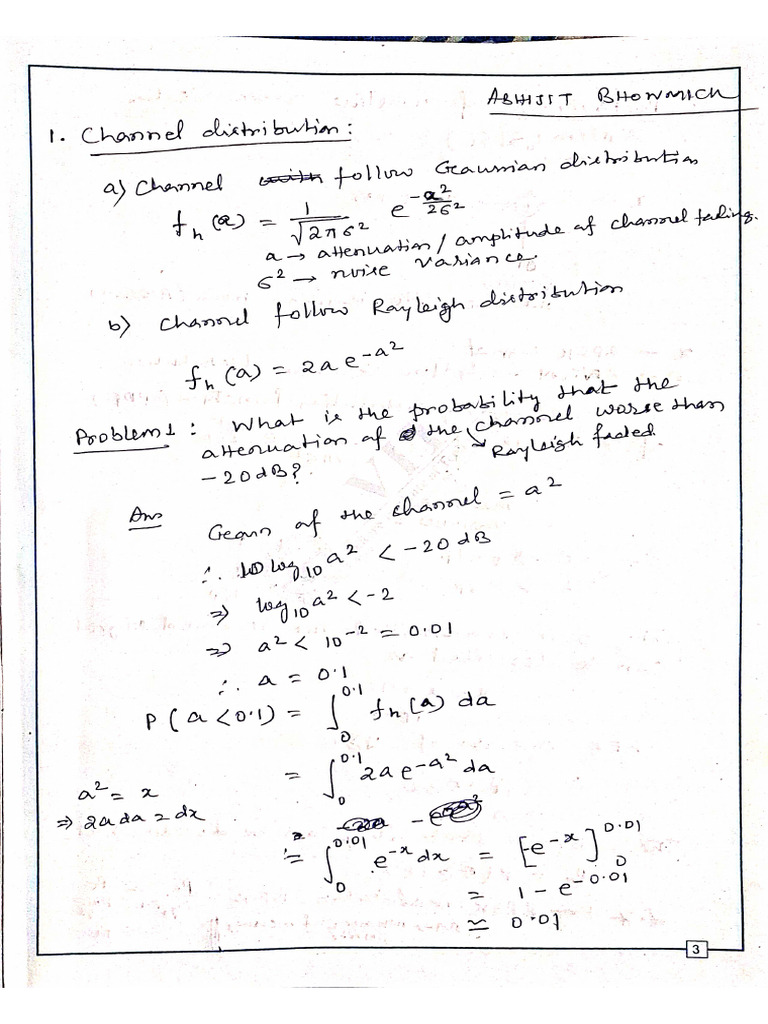 ABHIJIT BHOWMICK
1. Channel distribution:
a) Channel follow Gaussian distribution
fₕ(a) = 1/√(2πσ²) e^(-a²/2σ²)
a → attenuation / amplitude of channel fading.
σ² → noise variance.
b) Channel follow Rayleigh distribution
fₕ(a) = 2a e^(-a²)
Problem 1: What is the probability that the
attenuation of the channel worse than
→ Rayleigh faded.
-20dB?
Ans
of the channel = a²
∴ 10 log₁₀ a² < -20 dB
⇒ log₁₀ a² < -2
⇒ a² < 10⁻² = 0.01
∴ a = 0.1
P(a < 0.1) = ∫₀^0.1 fₕ(a) da
= ∫₀^0.1 2a e^(-a²) da
a² = x
⇒ 2a da = dx
= ∫₀^0.01 e^(-x) dx = [-e^(-x)]₀^0.01
= 1 - e^(-0.01)
≃ 0.01
3